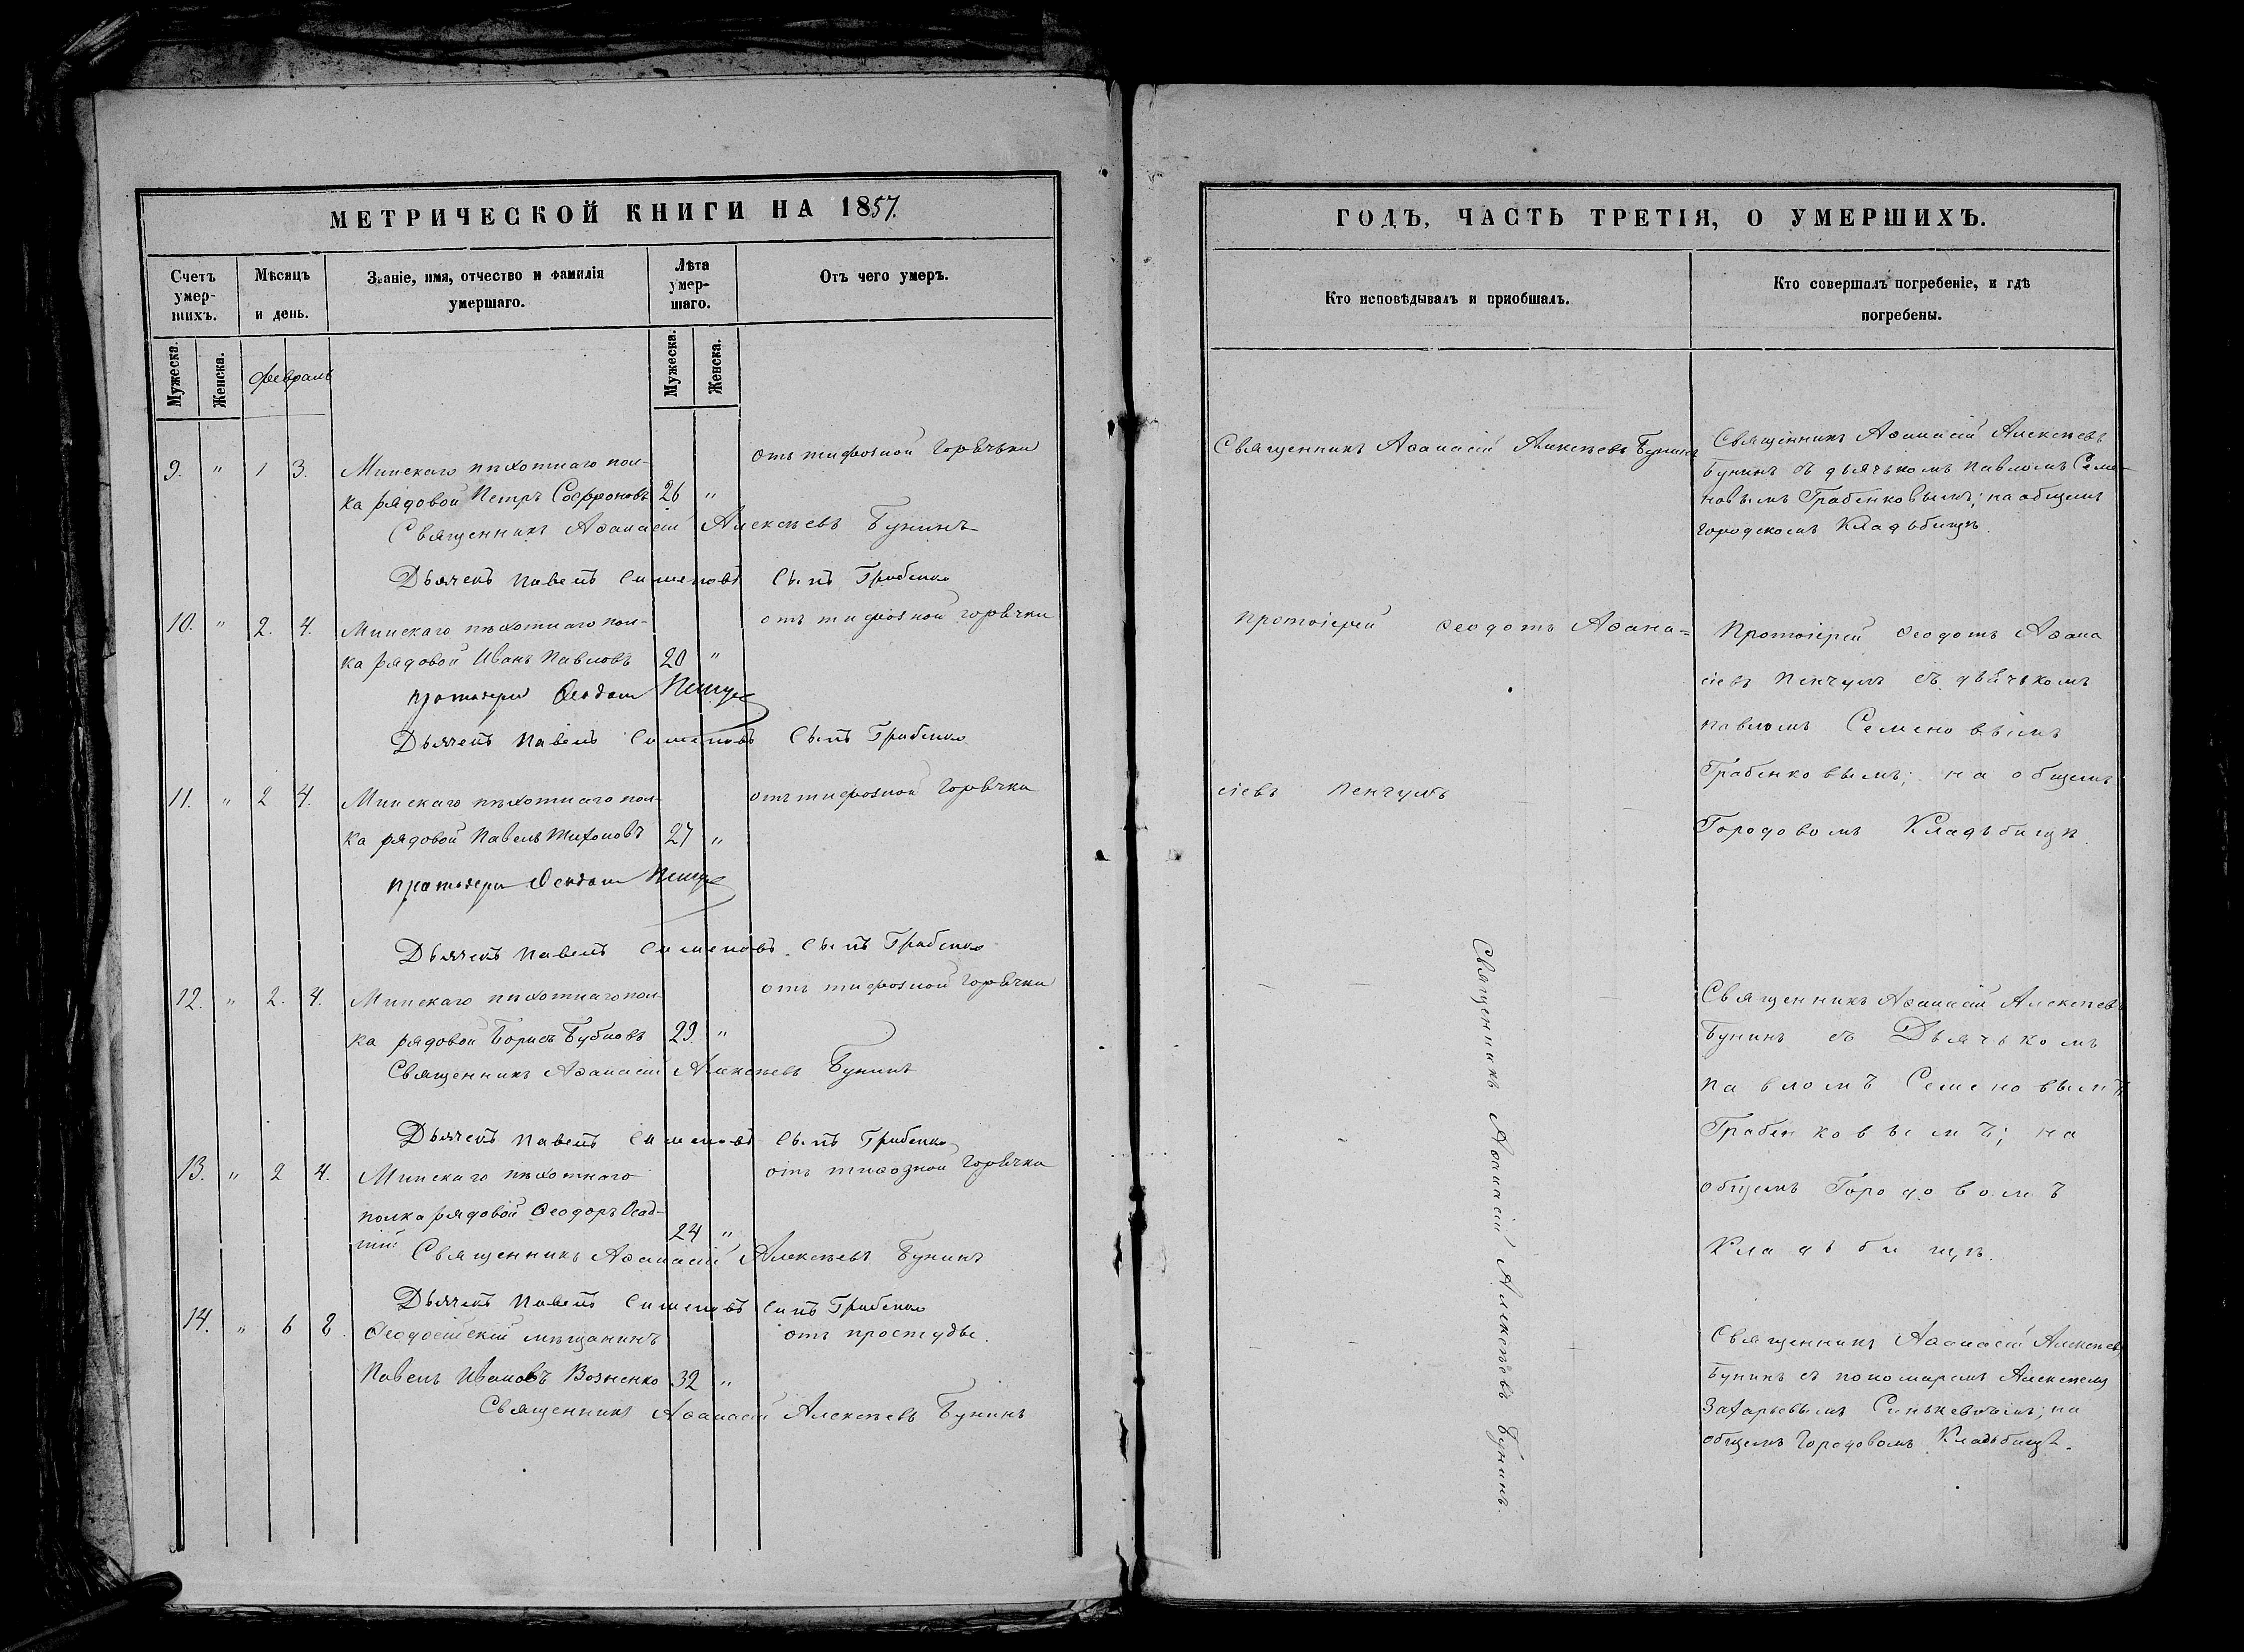 МЕТРИЧЕСКОЙ КНИГИ НА 1857.
Счетъ умер-шихъ.
Мѣсяцъ и день.
Званіе, имя, отчество и фамилія умершаго.
Лѣта умер-шаго.
Отъ чего умеръ.
Мужеска.
Женска.
февраль
Мужеска.
Женска.
9. " 1 3. Минскаго пѣхотнаго пол-
отъ тифозной горѣчьки
ка рядовой Петръ Софроновъ 26 "
Священникъ Аѳанасій Алексѣевъ Бунинъ
Дьячекъ Павелъ Сименовъ Сынъ Грабенко
10. " 2. 4. Минскаго пѣхотнаго пол-
отъ тифозной горѣчки
ка рядовой Иванъ Павловъ 20 "
протоіерей Ѳеодотъ
Дьячекъ Павелъ Сименовъ Сынъ Грабенко
11. " 2 4. Минскаго пѣхотнаго пол-
отъ тифозной горѣчки
ка рядовой Павелъ Тихоновъ 27 "
протоіерей Ѳеодотъ
Дьячекъ Павелъ Сименовъ Сынъ Грабенко
12. " 2. 4. Минскаго пѣхотнаго пол-
отъ тифозной горѣчки
ка рядовой Борисъ Бубновъ 29 "
Священникъ Аѳанасій Алексѣевъ Бунинъ
Дьячекъ Павелъ Сименовъ Сынъ Грабенко
13. " 2 4. Минскаго пѣхотнаго
отъ тифозной горѣчки
полка рядовой Ѳеодоръ Осад-
24 "
Священникъ Аѳанасій Алексѣевъ Бунинъ
Дьячекъ Павелъ Сименовъ Синъ Грабенко
14. " 6 8. Ѳеодосійскій мѣщанинъ
отъ простуды.
Павелъ Ивановъ Возненко 32 "
Священникъ Аѳанасій Алексѣевъ Бунинъ
ГОДЪ, ЧАСТЬ ТРЕТІЯ, О УМЕРШИХЪ.
Кто исповѣдывалъ и приобщалъ.
Кто совершалъ погребеніе, и гдѣ погребены.
Священникъ Аѳанасій Алексѣевъ Бунинъ
Священникъ Аѳанасій Алексѣевъ
Бунинъ съ дьячькомъ Павломъ Семе-
новымъ Грабенковымъ; на общемъ
городскомъ Кладьбищѣ.
Протоіерей Ѳеодотъ Аѳана=
сіевъ Пенчулъ
Протоіерей Ѳеодотъ Аѳана
сіевъ Пенчулъ съ дьячькомъ
Павломъ Семеновымъ
Грабенковымъ; на общемъ
Городовомъ Кладьбищѣ.
Священникъ Аѳанасій Алексѣевъ Бунинъ.
Священникъ Аѳанасій Алексѣевъ
Бунинъ съ Дьячькомъ
Павломъ Семеновымъ
Грабенковымъ; на
общемъ Городовомъ
Кладьбищѣ.
Священникъ Аѳанасій Алексѣевъ
Бунинъ съ пономаремъ Алексѣемъ
Захарьевымъ Синькевичемъ; на
общемъ Городовомъ Кладьбищѣ.